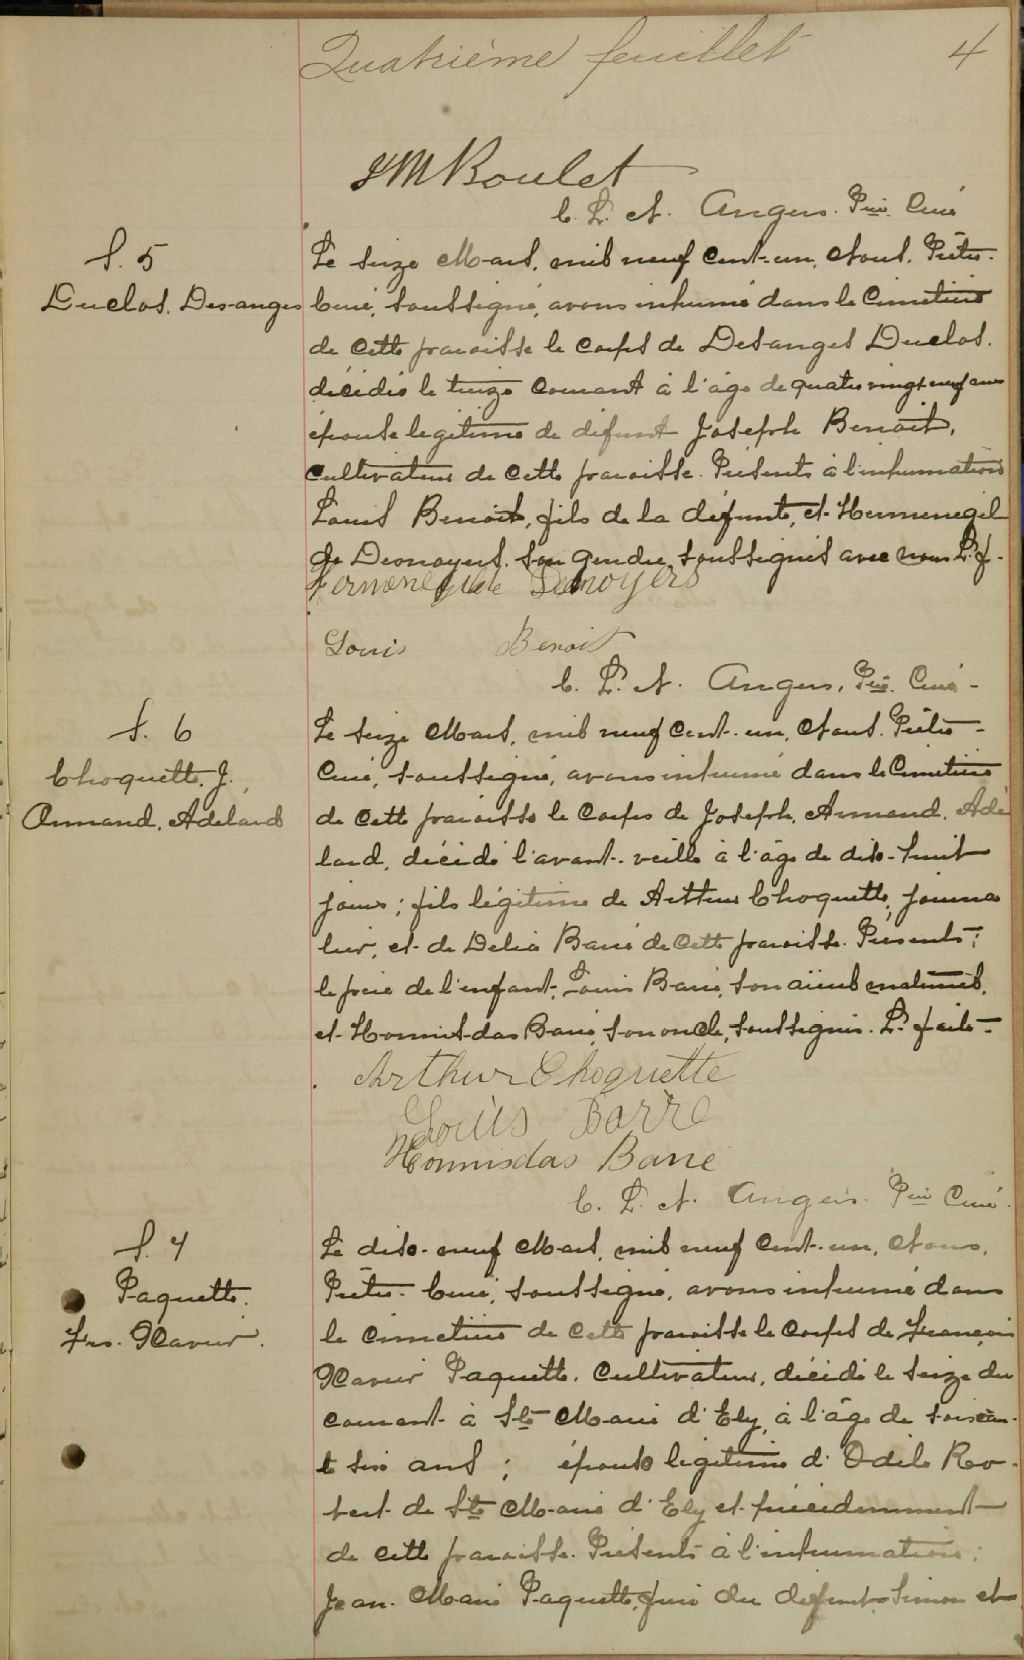 Quatrième feuillet 4
JM Boulet
C. L. A. Angers. Ptre Curé
S. 5
Duclos. Desanges
Le seize Mars, mil neuf cent-un, Nous, Prêtre-
Curé, soussigné, avons inhumé dans le Cimetière
de cette paroisse le corps de Desanges Duclos.
décédée le treize courant à l'âge de quatre vingt neuf ans
épouse légitime de défunt Joseph Benoit,
cultivateur de cette paroisse. Présents à l'inhumation
Louis Benoit, fils de la défunte, et Hermenegil
de Desnoyers, son gendre, soussignés avec nous L. f.
Hermenegilde Denoyers
Louis Benoit
C. L. A. Angers, Ptre. Curé-
S. 6
Choquette, J.,
Armand, Adelard
Le seize Mars, mil neuf cent-un, Nous, Prêtre-
Curé, soussigné, avons inhumé dans le Cimetière
de cette paroisse le corps de Joseph, Armand, Adé
lard, décédé l'avant-veille à l'âge de dix-huit
jours; fils légitime de Arthur Choquette, journa
lier, et de Delia Barré de cette paroisse. Présents:
le père de l'enfant, Louis Barré, son aïeul maternel,
et Hormisdas Barré, son oncle, soussignés. L. faite-
Arthur Choquette
Louis Barre
Hormisdas Barré
C. L. A. Angers. Ptre Curé.
S. 7
Paquette.
Frs. Xavier.
Le dix-neuf Mars, mil neuf cent-un, Nous,
Prêtre-Curé, soussigné, avons inhumé dans
le cimetière de cette paroisse le corps de François
Xavier Paquette, cultivateur, décédé le seize du
courant à Ste Marie d'Ely, à l'âge de soixan-
te six ans; époux légitime d'Odile Ro-
bert de Ste Marie d'Ely et précédemment
de cette paroisse. Présents à l'inhumation:
Jean-Marie Paquette, frère du défunt, Simon et